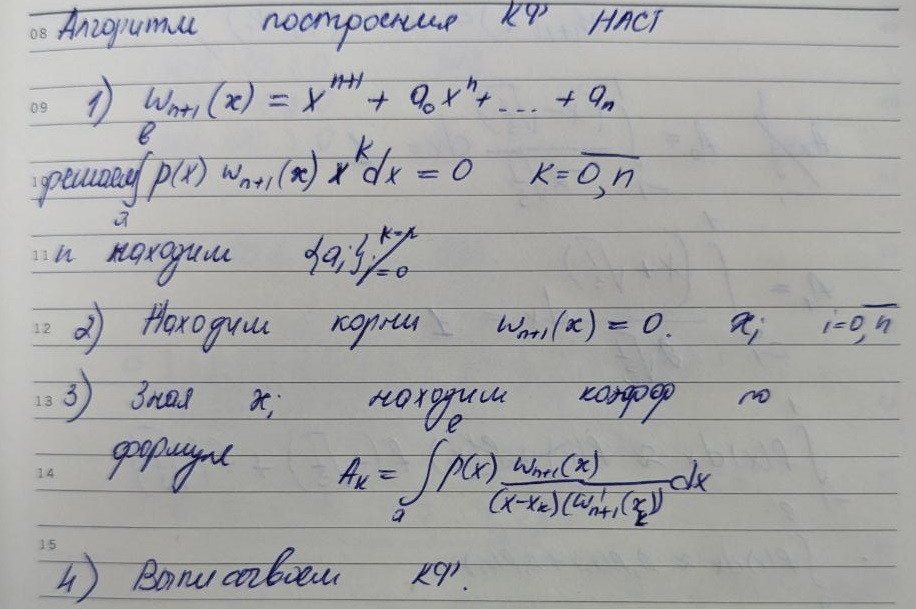 08 Алгоритм построения КФ НАСТ
09 1) ω_{n+1}(x) = x^{n+1} + a_0 x^n + ... + a_n
10 решаем ∫_a^b p(x) ω_{n+1}(x) x^k dx = 0 K = \overline{0,n}
11 и находим {a_i}_{i=0}^{k=n}
12 2) Находим корни ω_{n+1}(x) = 0. x_i i = \overline{0,n}
13 3) Зная x_i находим коэфф по
14 формуле A_k = ∫_a^b p(x) \frac{ω_{n+1}(x)}{(x-x_k)(ω'_{n+1}(x_k))} dx
15
4) Выписываем КФ.